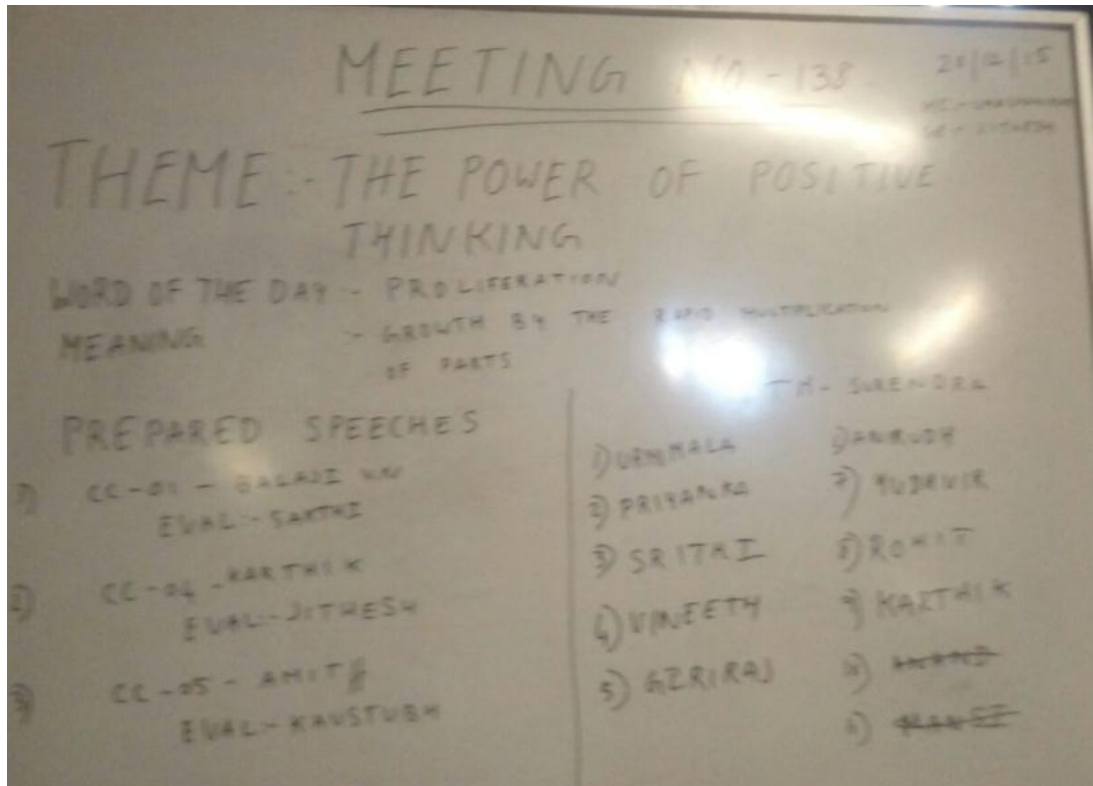 MEETING NO - 138
THEME :- THE POWER OF POSITIVE
THINKING
WORD OF THE DAY :- PROLIFERATION
MEANING :- GROWTH BY THE RAPID MULTIPLICATION
OF PARTS
PREPARED SPEECHES
1) CC-01 - BALAJI
EVAL :- SAKTHI
2) CC-04 - KARTHIK
EVAL :- JITHESH
3) CC-05 - AMIT
EVAL :- KAUSTUBH
TM - SURENDRA
1) URMMALA
2) PRIYANKA
3) SRITHI
4) VINEETH
5) GIRIRAJ
ANIRUDH
7) YUDHVIR
8) ROHIT
9) KARTHIK
10)